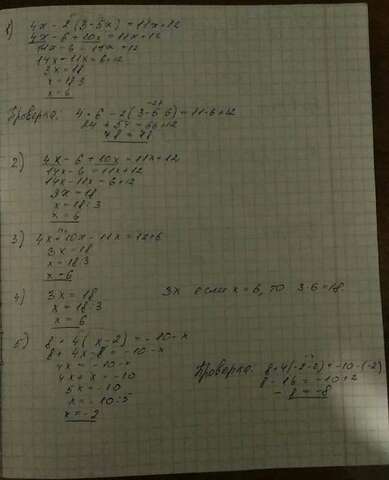 1) 4x - 2(3-5x) = 11x+12
4x - 6 + 10x = 11x+12
14x - 6 = 11x+12
14x - 11x = 6+12
3x = 18
x = 18:3
x = 6
Проверка: 4·6 - 2(3-5·6) = 11·6+12
24 + 54 = 66+12
78 = 78
2) 4x - 6 + 10x = 11x+12
14x - 6 = 11x+12
14x - 11x = 6+12
3x = 18
x = 18:3
x = 6
3) 4x+10x - 11x = 12+6
3x = 18
x = 18:3
x = 6
4) 3x = 18
x = 18:3
x = 6
3x если x = 6, то 3·6 = 18
5) 8+4(x-2) = -10-x
8+4x-8 = -10-x
4x = -10-x
4x+x = -10
5x = -10
x = -10:5
x = -2
Проверка: 8+4(-2-2) = -10-(-2)
8-16 = -10+2
-8 = -8